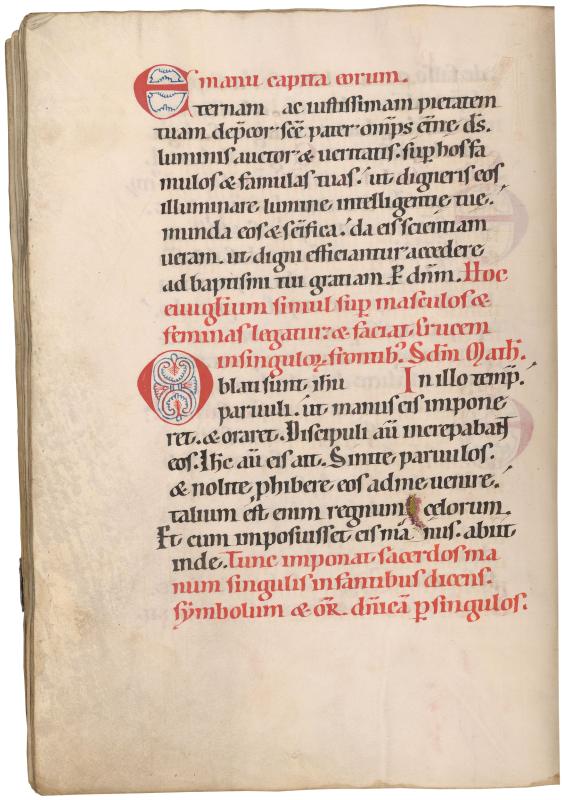 manu capita eorum.
Eternam ac iustissimam pietatem
tuam dep̄cor sc̄e pater om̄ps et̄ne d̄s.
luminis auctor & ueritatis. sup̄ hos fa
mulos & famulas tuas. ut digneris eos
illuminare lumine intelligentie tue.
munda eos & sc̄ifica. da eis scientiam
ueram. ut digni efficiantur accedere
ad baptismi tui gratiam. P̄ dn̄m. Hoc
euuglium simul sup̄ masculos &
feminas legatur & faciat crucem
in singuloꝝ frontib᷒. Scd̄m Math̄.
Oblati sunt ih̄u In illo temp̄.
paruuli. ut manus eis impone
ret. & oraret. Discipuli aū increpabant
eos. Ih̄c aū eis ait. Sinite paruulos.
& nolite p̄hibere eos ad me uenire.
talium est enim regnum celorum.
Et cum imposuisset eis manus. abiit
inde. Tunc imponat sacerdos ma
num singulis infantibus dicens.
symbolum & or̄. dn̄icā p singulos.